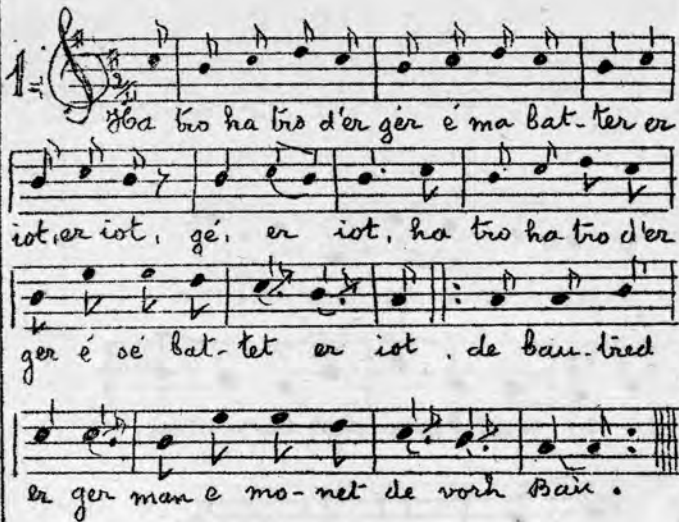 1.
Ha tro ha tro d'er gér é ma bat-ter er
iot, er iot, gé, er iot, ha tro ha tro d'er
ger é sé bat-tet er iot, de bau-tred
er ger man e mo-net de vorh Baù.